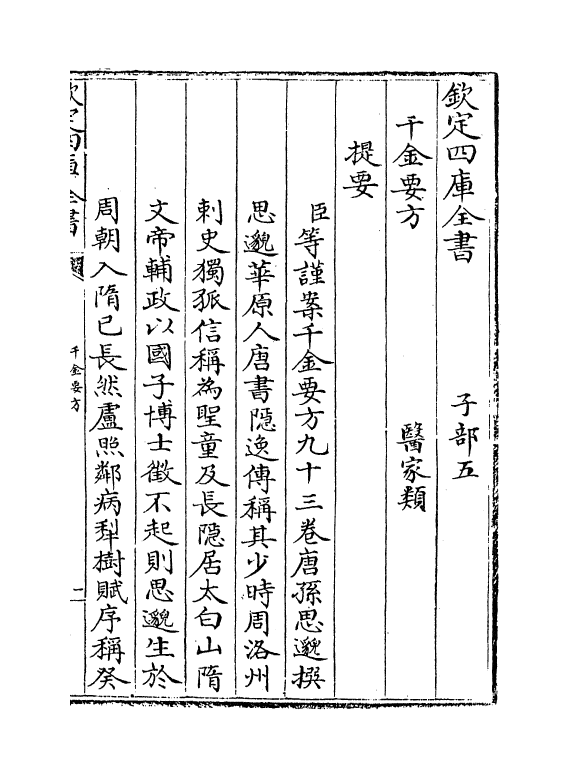 欽定四庫全書　　　子部五
千金要方　　　　　醫家類
提要
臣等謹案千金要方九十三卷唐孫思邈撰
思邈華原人唐書隱逸傳稱其少時周洛州
刺史獨孤信稱為聖童及長隱居太白山隋
文帝輔政以國子博士徵不起則思邈生於
周朝入隋已長然盧照鄰病犁樹賦序稱癸
欽定四庫全書
千金要方